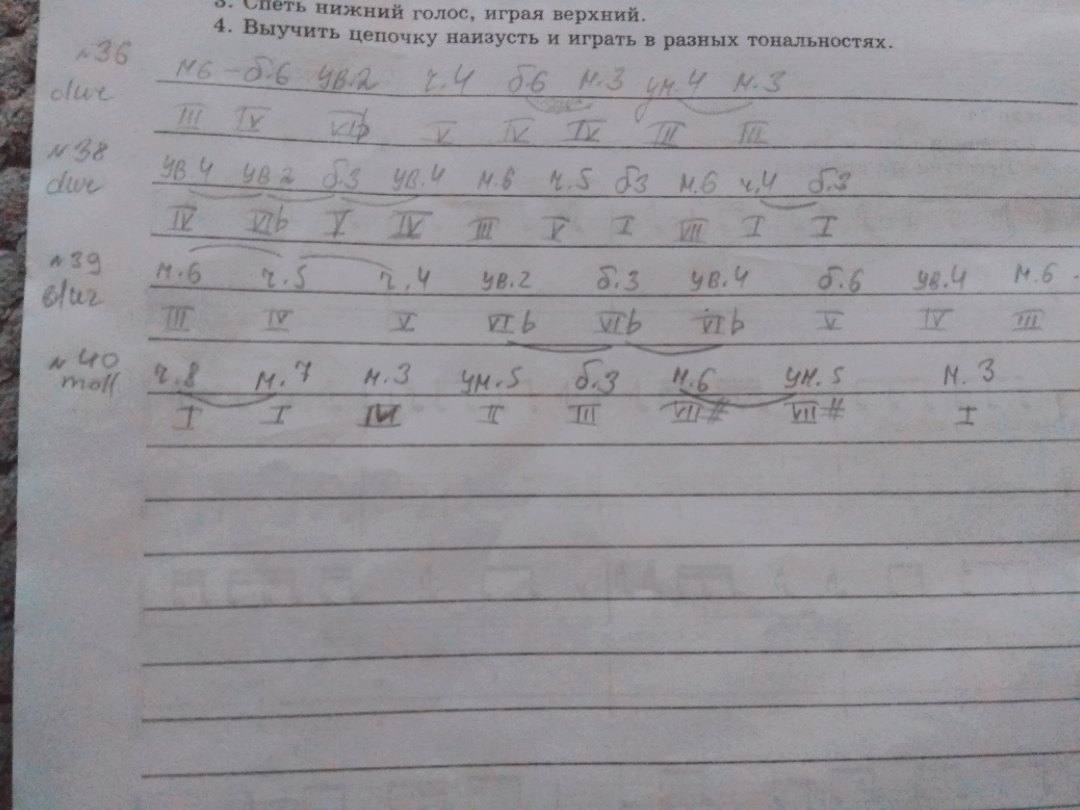 3. Спеть нижний голос, играя верхний.
4. Выучить цепочку наизусть и играть в разных тональностях.
№36 м6 – б.6 ув.2 ч.4 б6 м.3 ум.4 м.3
dur III IV VIb V IV IV III III
№38 ув.4 ув2 б.3 ув.4 м.6 ч.5 б3 м.6 ч.4 б.3
dur IV VIb V IV III V I VII I I
№39 м.6 ч.5 ч.4 ув.2 б.3 ув.4 б.6 ув.4 м.6
dur III IV V VIb VIb VIb V IV III
№40 ч.8 м.7 м.3 ум.5 б.3 м.6 ум.5 м.3
moll I I II III VII# VII# I